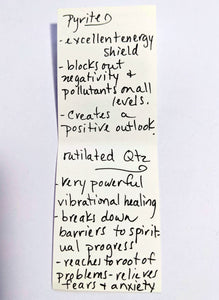 Pyrite
- excellent energy
shield
- blocks out
negativity &
pollutants on all
levels.
- Creates a
positive outlook.
rutilated Qtz
- Very powerful
vibrational healing
- breaks down
barriers to spirit-
ual progress
- reaches to root of
problems - relieves
fears & anxiety